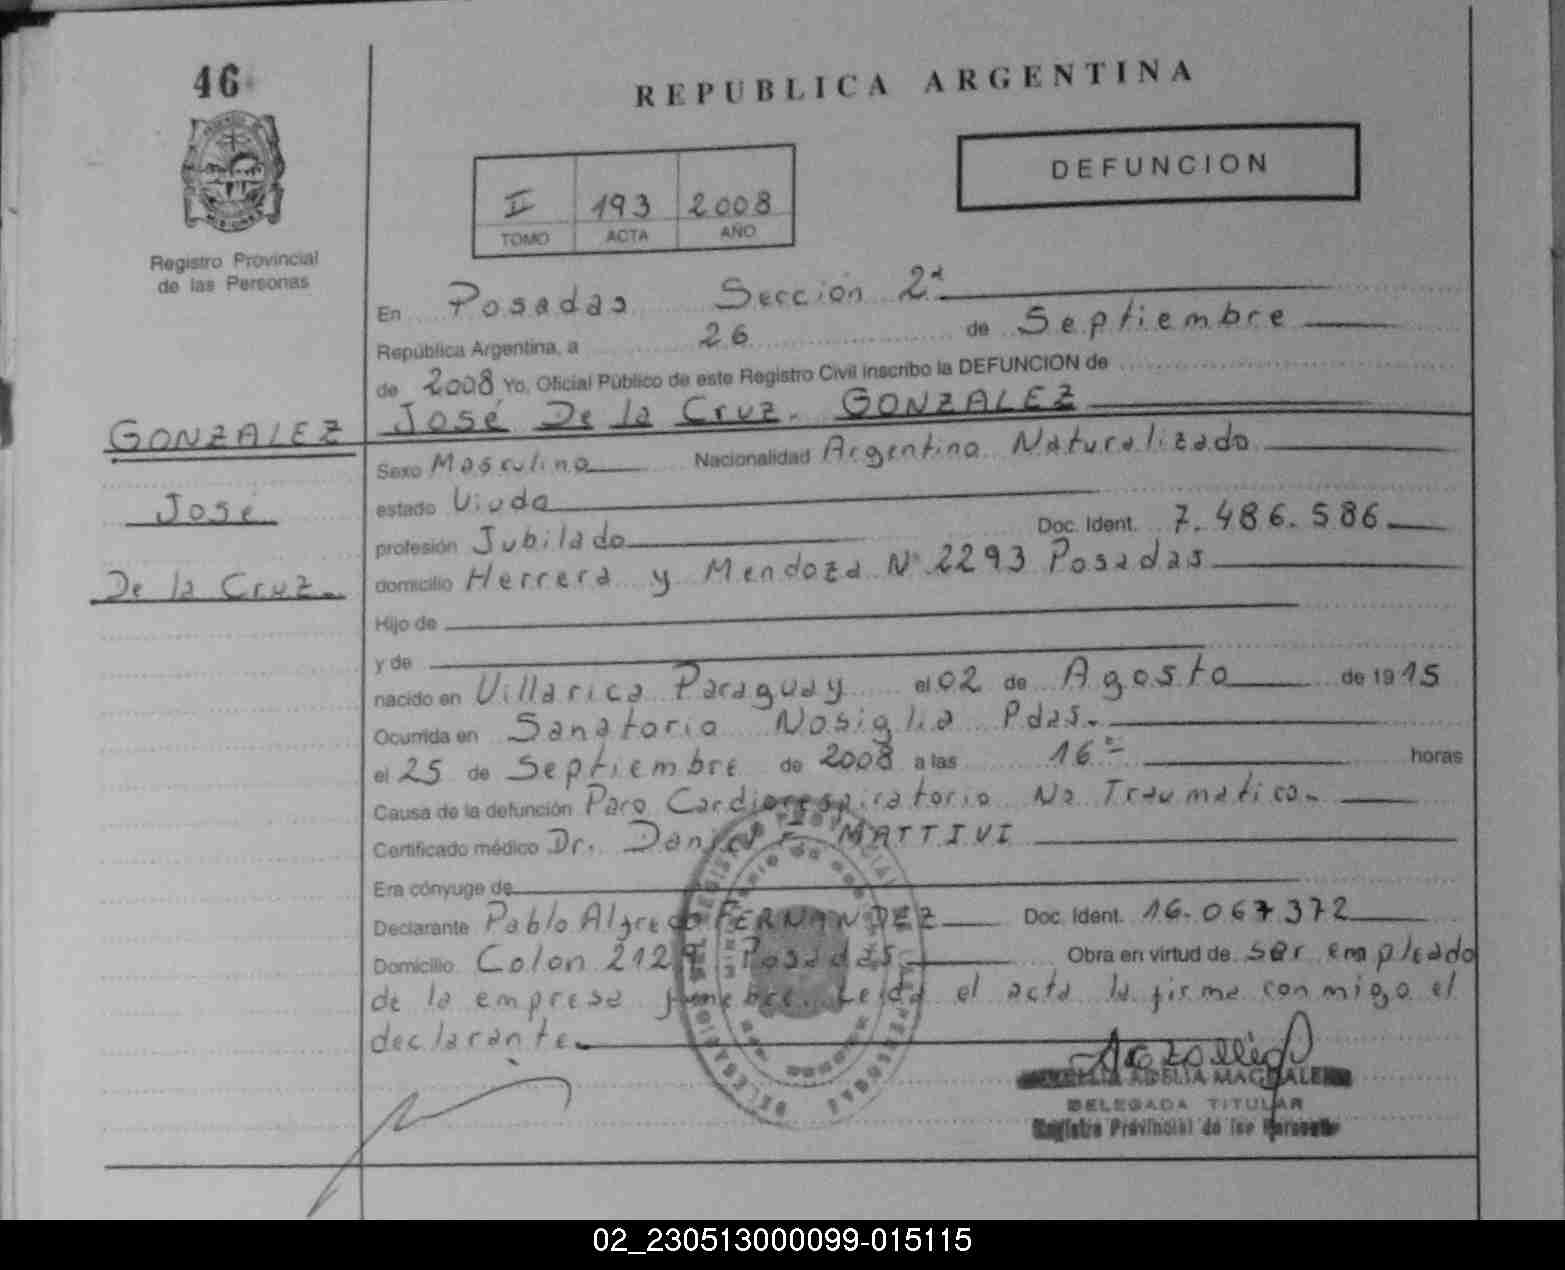 46
REPUBLICA ARGENTINA
DEFUNCION
II 193 2008
TOMO ACTA AÑO
Registro Provincial
de las Personas
En Posadas Sección 2ª
República Argentina, a 26 de Septiembre
de 2008 Yo, Oficial Público de este Registro Civil inscribo la DEFUNCION de
José De la Cruz. GONZALEZ
GONZALEZ
José
De la Cruz.
Sexo Masculino Nacionalidad Argentino Naturalizado
estado Viudo
profesión Jubilado Doc. Ident. 7.486.586
domicilio Herrera y Mendoza Nº 2293 Posadas
Hijo de
y de
nacido en Villarica Paraguay el 02 de Agosto de 1915
Ocurrida en Sanatorio Nosiglia Pdas.
el 25 de Septiembre de 2008 a las 16 horas
Causa de la defunción Paro Cardiorespiratorio No Traumatico.
Certificado médico Dr. Daniel MATTIVI
Era cónyuge de
Declarante Pablo Alfredo FERNANDEZ Doc. Ident. 16.067.372
Domicilio Colon 2129 Posadas Obra en virtud de ser empleado
de la empresa funebre. Leida el acta la firma conmigo el
declarante.
ADELIA
DELEGADA TITULAR
Registro Provincial de las Personas
02_230513000099-015115